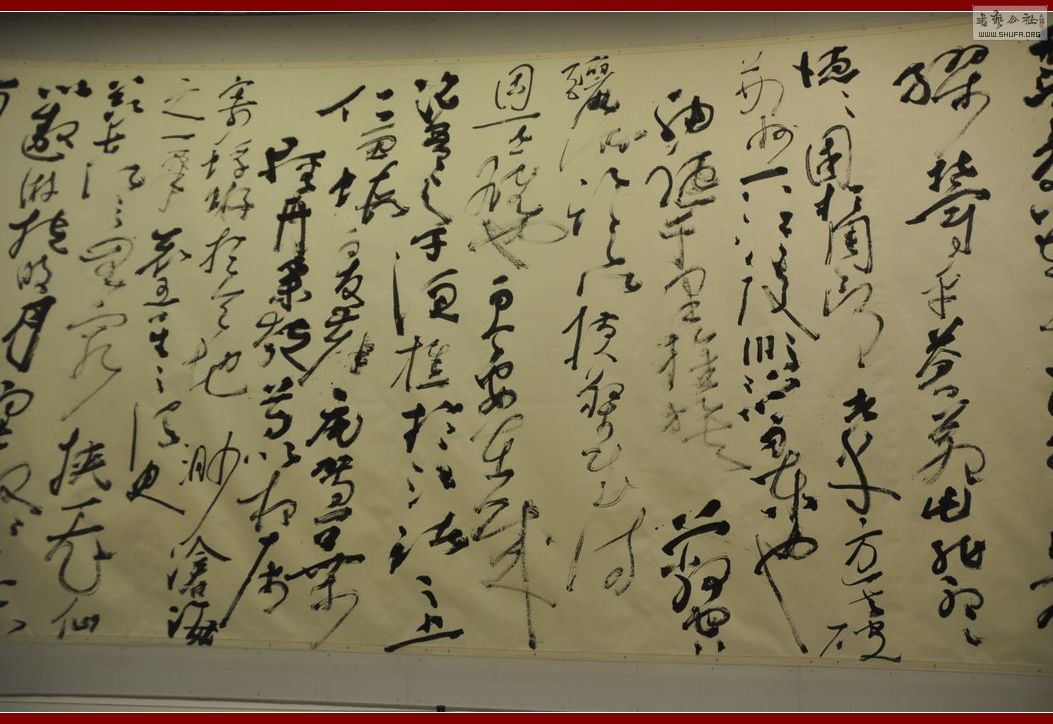 繆鬱乎蒼蒼此非孟
德之困於周郎者乎方其破
荊州下江陵順流而東也
舳艫千里旌旗蔽空
釃酒臨江橫槊賦詩
固一世之雄也而今安在哉
況吾與子漁樵於江渚之上
侶魚蝦而友麋鹿駕一葉
扁舟舉匏樽以相屬
寄蜉蝣於天地渺滄海
之一粟哀吾生之須臾
羨長江之無窮挾飛仙
以遨遊抱明月
WWW.SHUFA.ORG